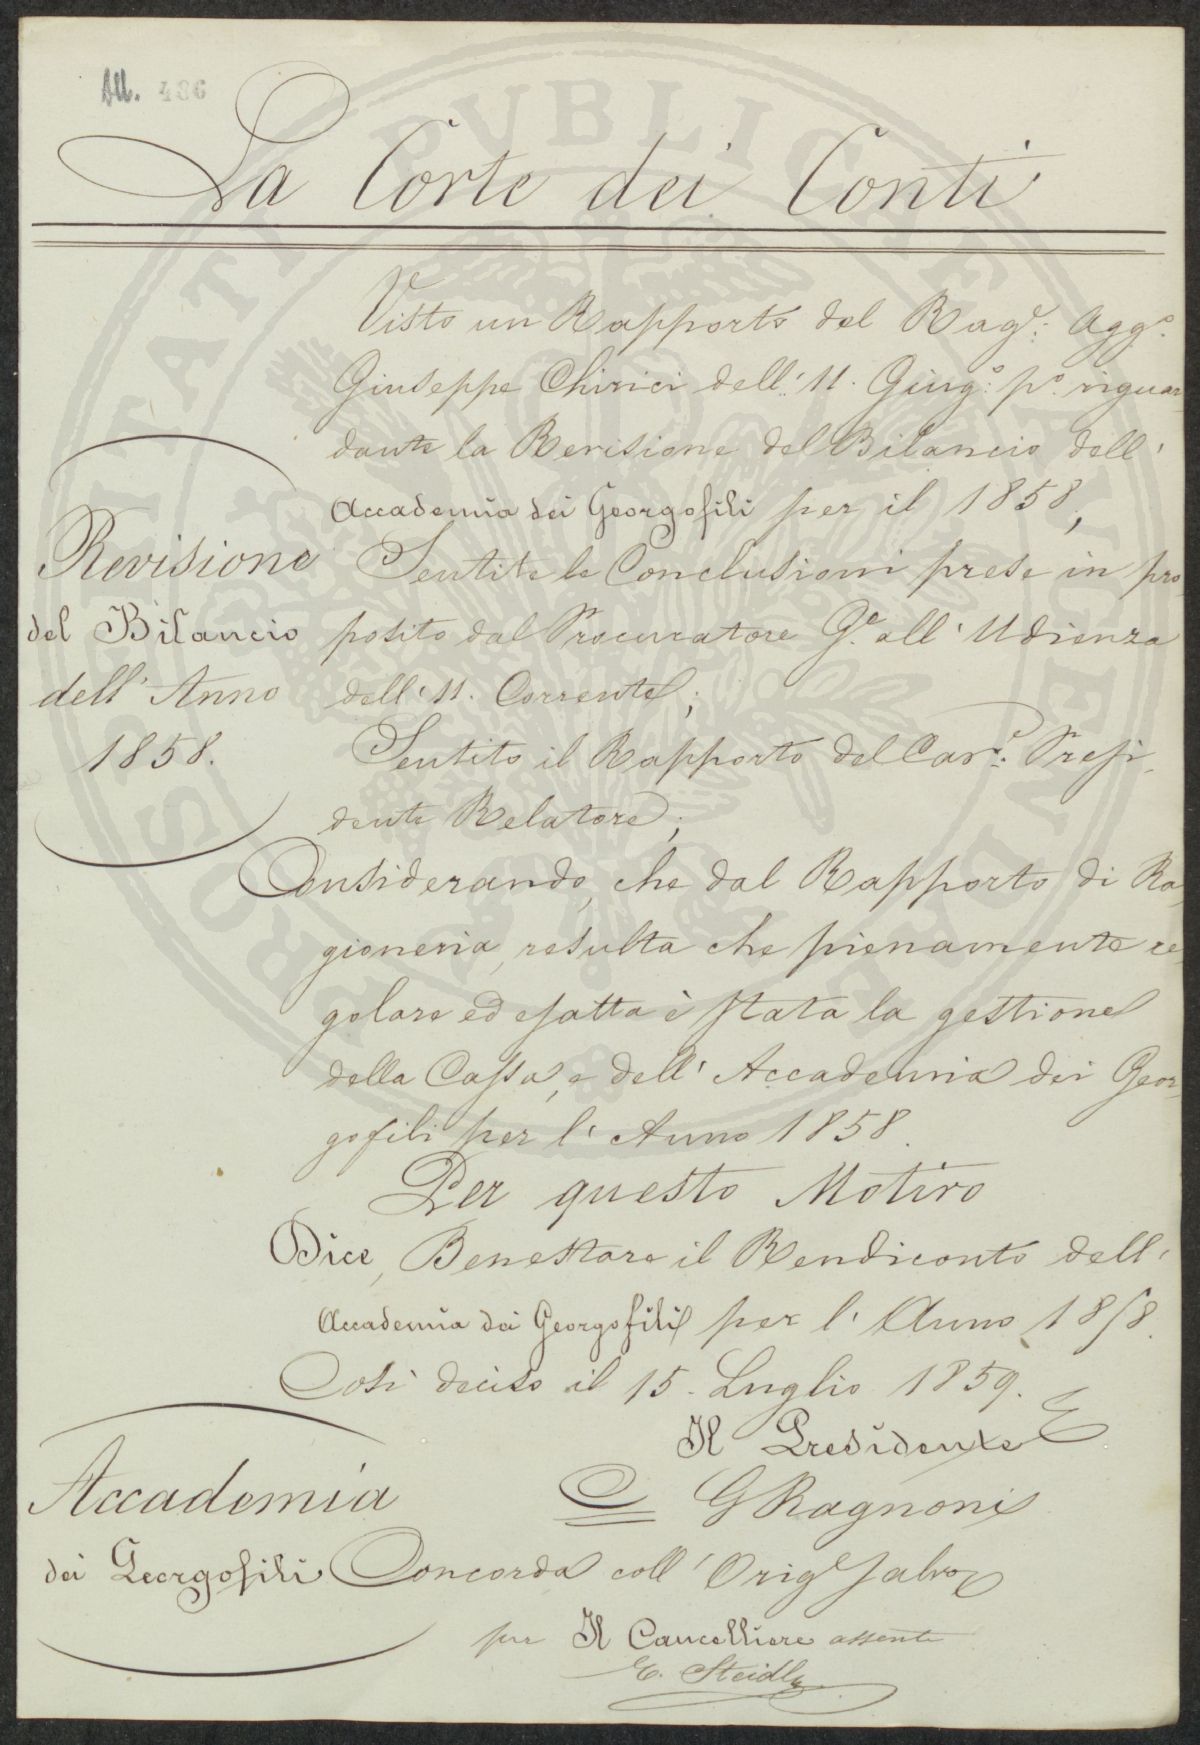 All. 436
La Corte dei Conti
Visto un Rapporto del Rag.e: Agg.o
Giuseppe Chirici dell' 11. Giug.o: p.o riguar
dante la Revisione del Bilancio dell'
Accademia dei Georgofili per il 1858,
Sentite le Conclusioni prese in pro
posito dal Procuratore G.e all' Udienza
dell' 11. Corrente;
Sentito il Rapporto del Cav.e: Presi
dente Relatore;
Considerando, che dal Rapporto di Ra
gioneria, resulta che pienamente re
golare ed esatta è stata la gestione
della Cassa, e dell' Accademia dei Geor
gofili per l' Anno 1858.
Per questo Motivo
Dice, Benestare il Rendiconto dell'
Accademia dei Georgofili per l' Anno 1858.
Così deciso il 15. Luglio 1859.
Il Presidente
G Ragnoni
Concorda coll' Orig.e salvo
per Il Cancelliere assente
E. Steidl
Revisione
del Bilancio
dell' Anno
1858.
Accademia
dei Georgofili
PROSPERITATI PUBLICAE AUGENDAE